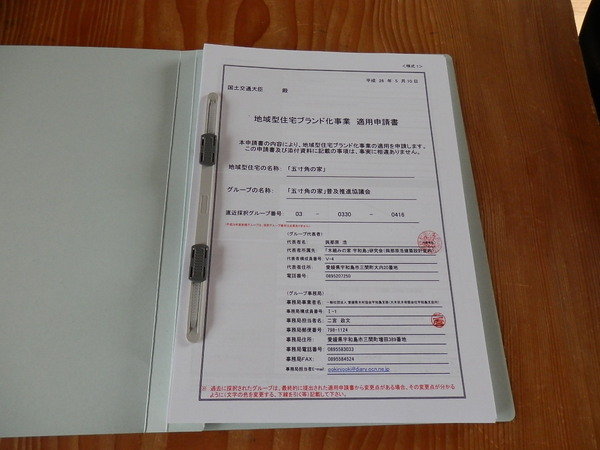 <様式1>
平成 26年 5月10日
国土交通大臣 殿
地域型住宅ブランド化事業 適用申請書
本申請書の内容により、地域型住宅ブランド化事業の適用を申請します。
この申請書及び添付資料に記載の事項は、事実に相違ありません。
地域型住宅の名称: 「五寸角の家」
グループの名称: 「五寸角の家」普及推進協議会
直近採択グループ番号 03 - 0330 - 0416
(グループ代表者)
代表者名:
代表者所属先: 「木組みの家 宇和島」研究会
代表者構成員番号: V-4
代表者住所: 愛媛県宇和島市三間町大内20番地
電話番号: 0895207250
(グループ事務局)
事務局事業者名:
事務局構成員番号: I-1
事務局担当者名: 二宮 政文
事務局郵便番号: 798-1124
事務局住所: 愛媛県宇和島市三間町増田389番地
事務局電話番号: 0895583033
事務局FAX: 0895584524
事務局担当者E-mail: ookiniooki@diary.ocn.ne.jp
※ 過去に採択されたグループは、最終的に提出された適用申請書から変更点がある場合、その変更点が分かる
ように(文字の色を変更する、下線を引く等)記載して下さい。